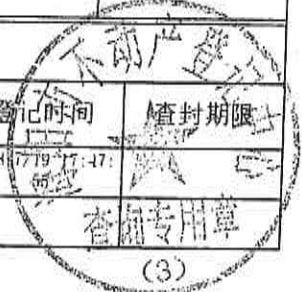 不动产登记中心
登记时间 查封期限
查询专用章
(3)